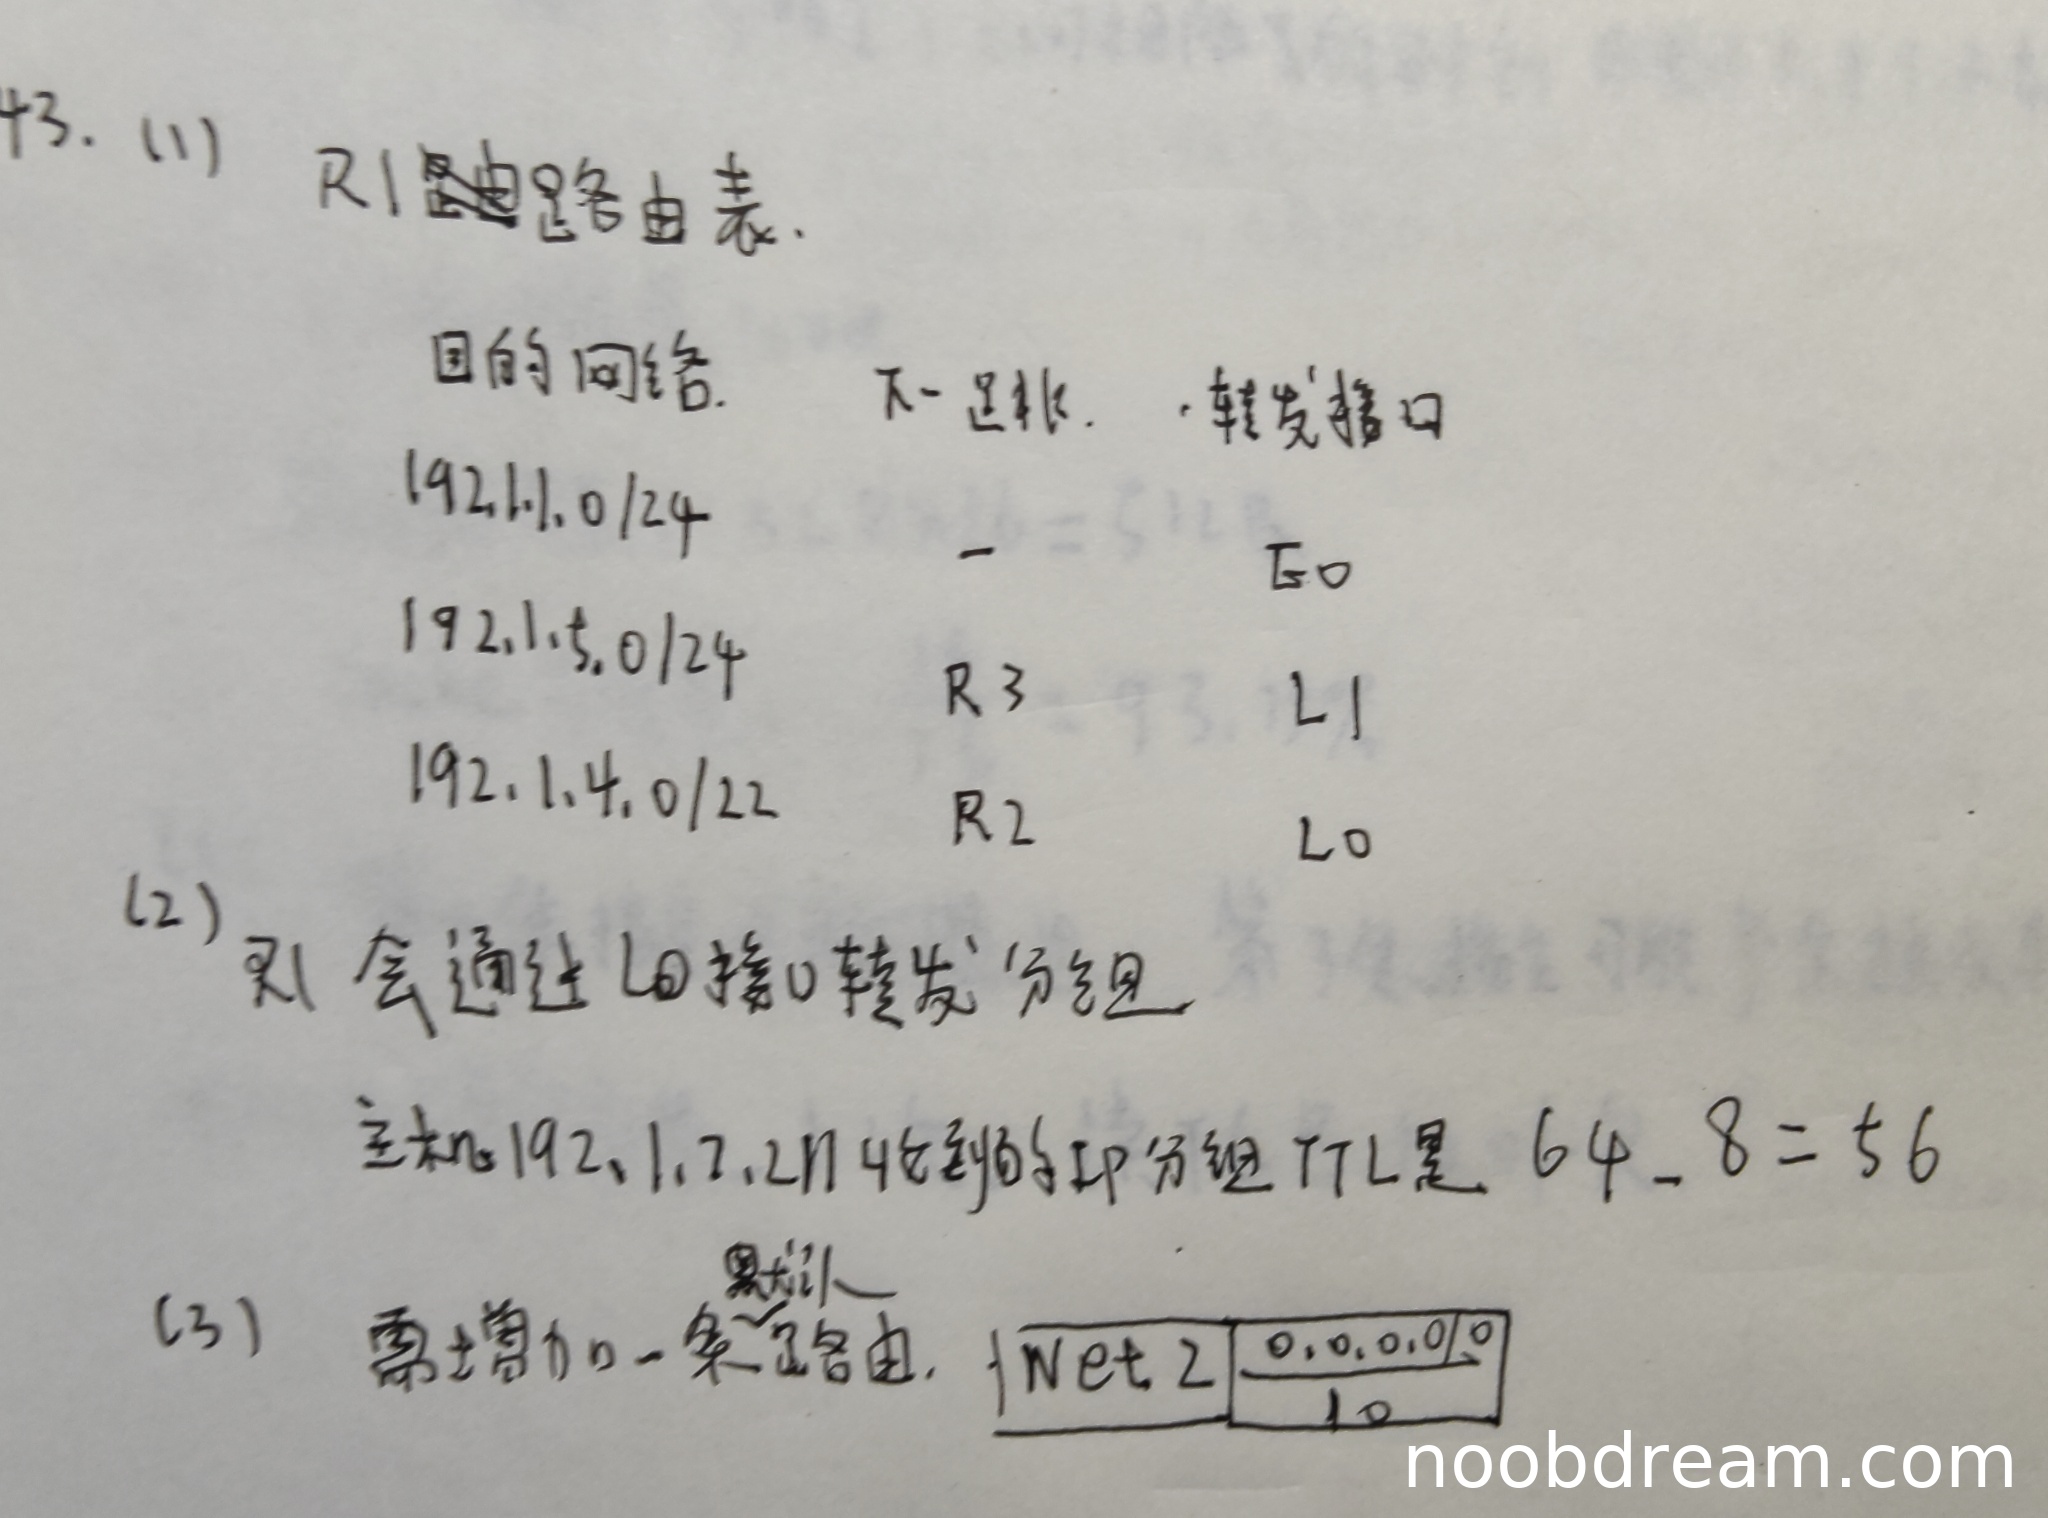 43. (1) R1路由表.
目的网络. 下一跳. 转发接口
192.1.1.0/24 - E0
192.1.5.0/24 R3 L1
192.1.4.0/22 R2 L0
(2) R1 会通过 L0 接口转发分组
主机192.1.7.211收到的IP分组TTL是 64-8=56
(3) 需增加一条默认路由. Net2 0.0.0.0/0
10
noobdream.com